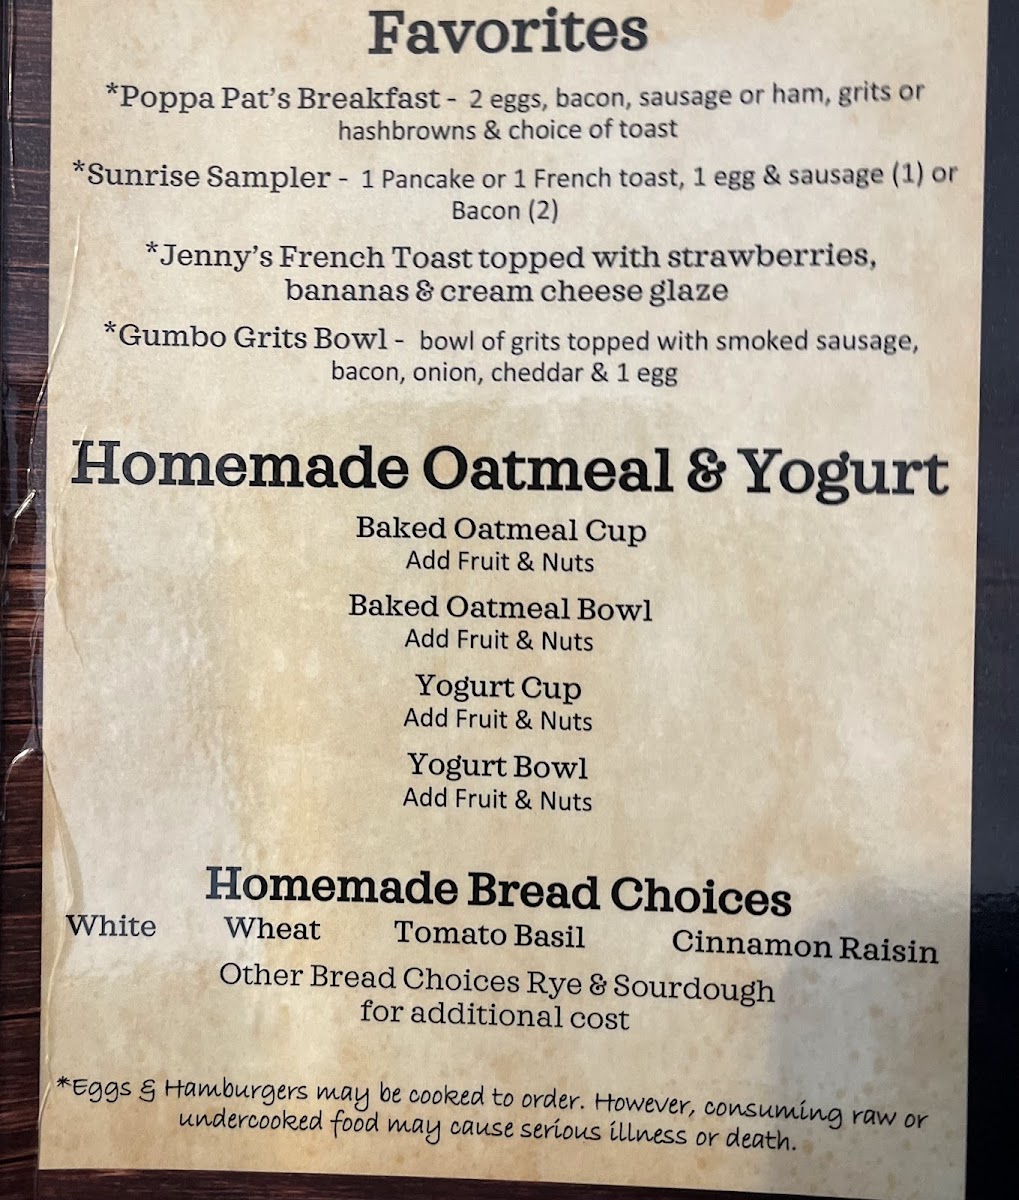 Favorites
*Poppa Pat's Breakfast - 2 eggs, bacon, sausage or ham, grits or
hashbrowns & choice of toast
*Sunrise Sampler - 1 Pancake or 1 French toast, 1 egg & sausage (1) or
Bacon (2)
*Jenny's French Toast topped with strawberries,
bananas & cream cheese glaze
*Gumbo Grits Bowl - bowl of grits topped with smoked sausage,
bacon, onion, cheddar & 1 egg
Homemade Oatmeal & Yogurt
Baked Oatmeal Cup
Add Fruit & Nuts
Baked Oatmeal Bowl
Add Fruit & Nuts
Yogurt Cup
Add Fruit & Nuts
Yogurt Bowl
Add Fruit & Nuts
Homemade Bread Choices
White Wheat Tomato Basil Cinnamon Raisin
Other Bread Choices Rye & Sourdough
for additional cost
*Eggs & Hamburgers may be cooked to order. However, consuming raw or
undercooked food may cause serious illness or death.